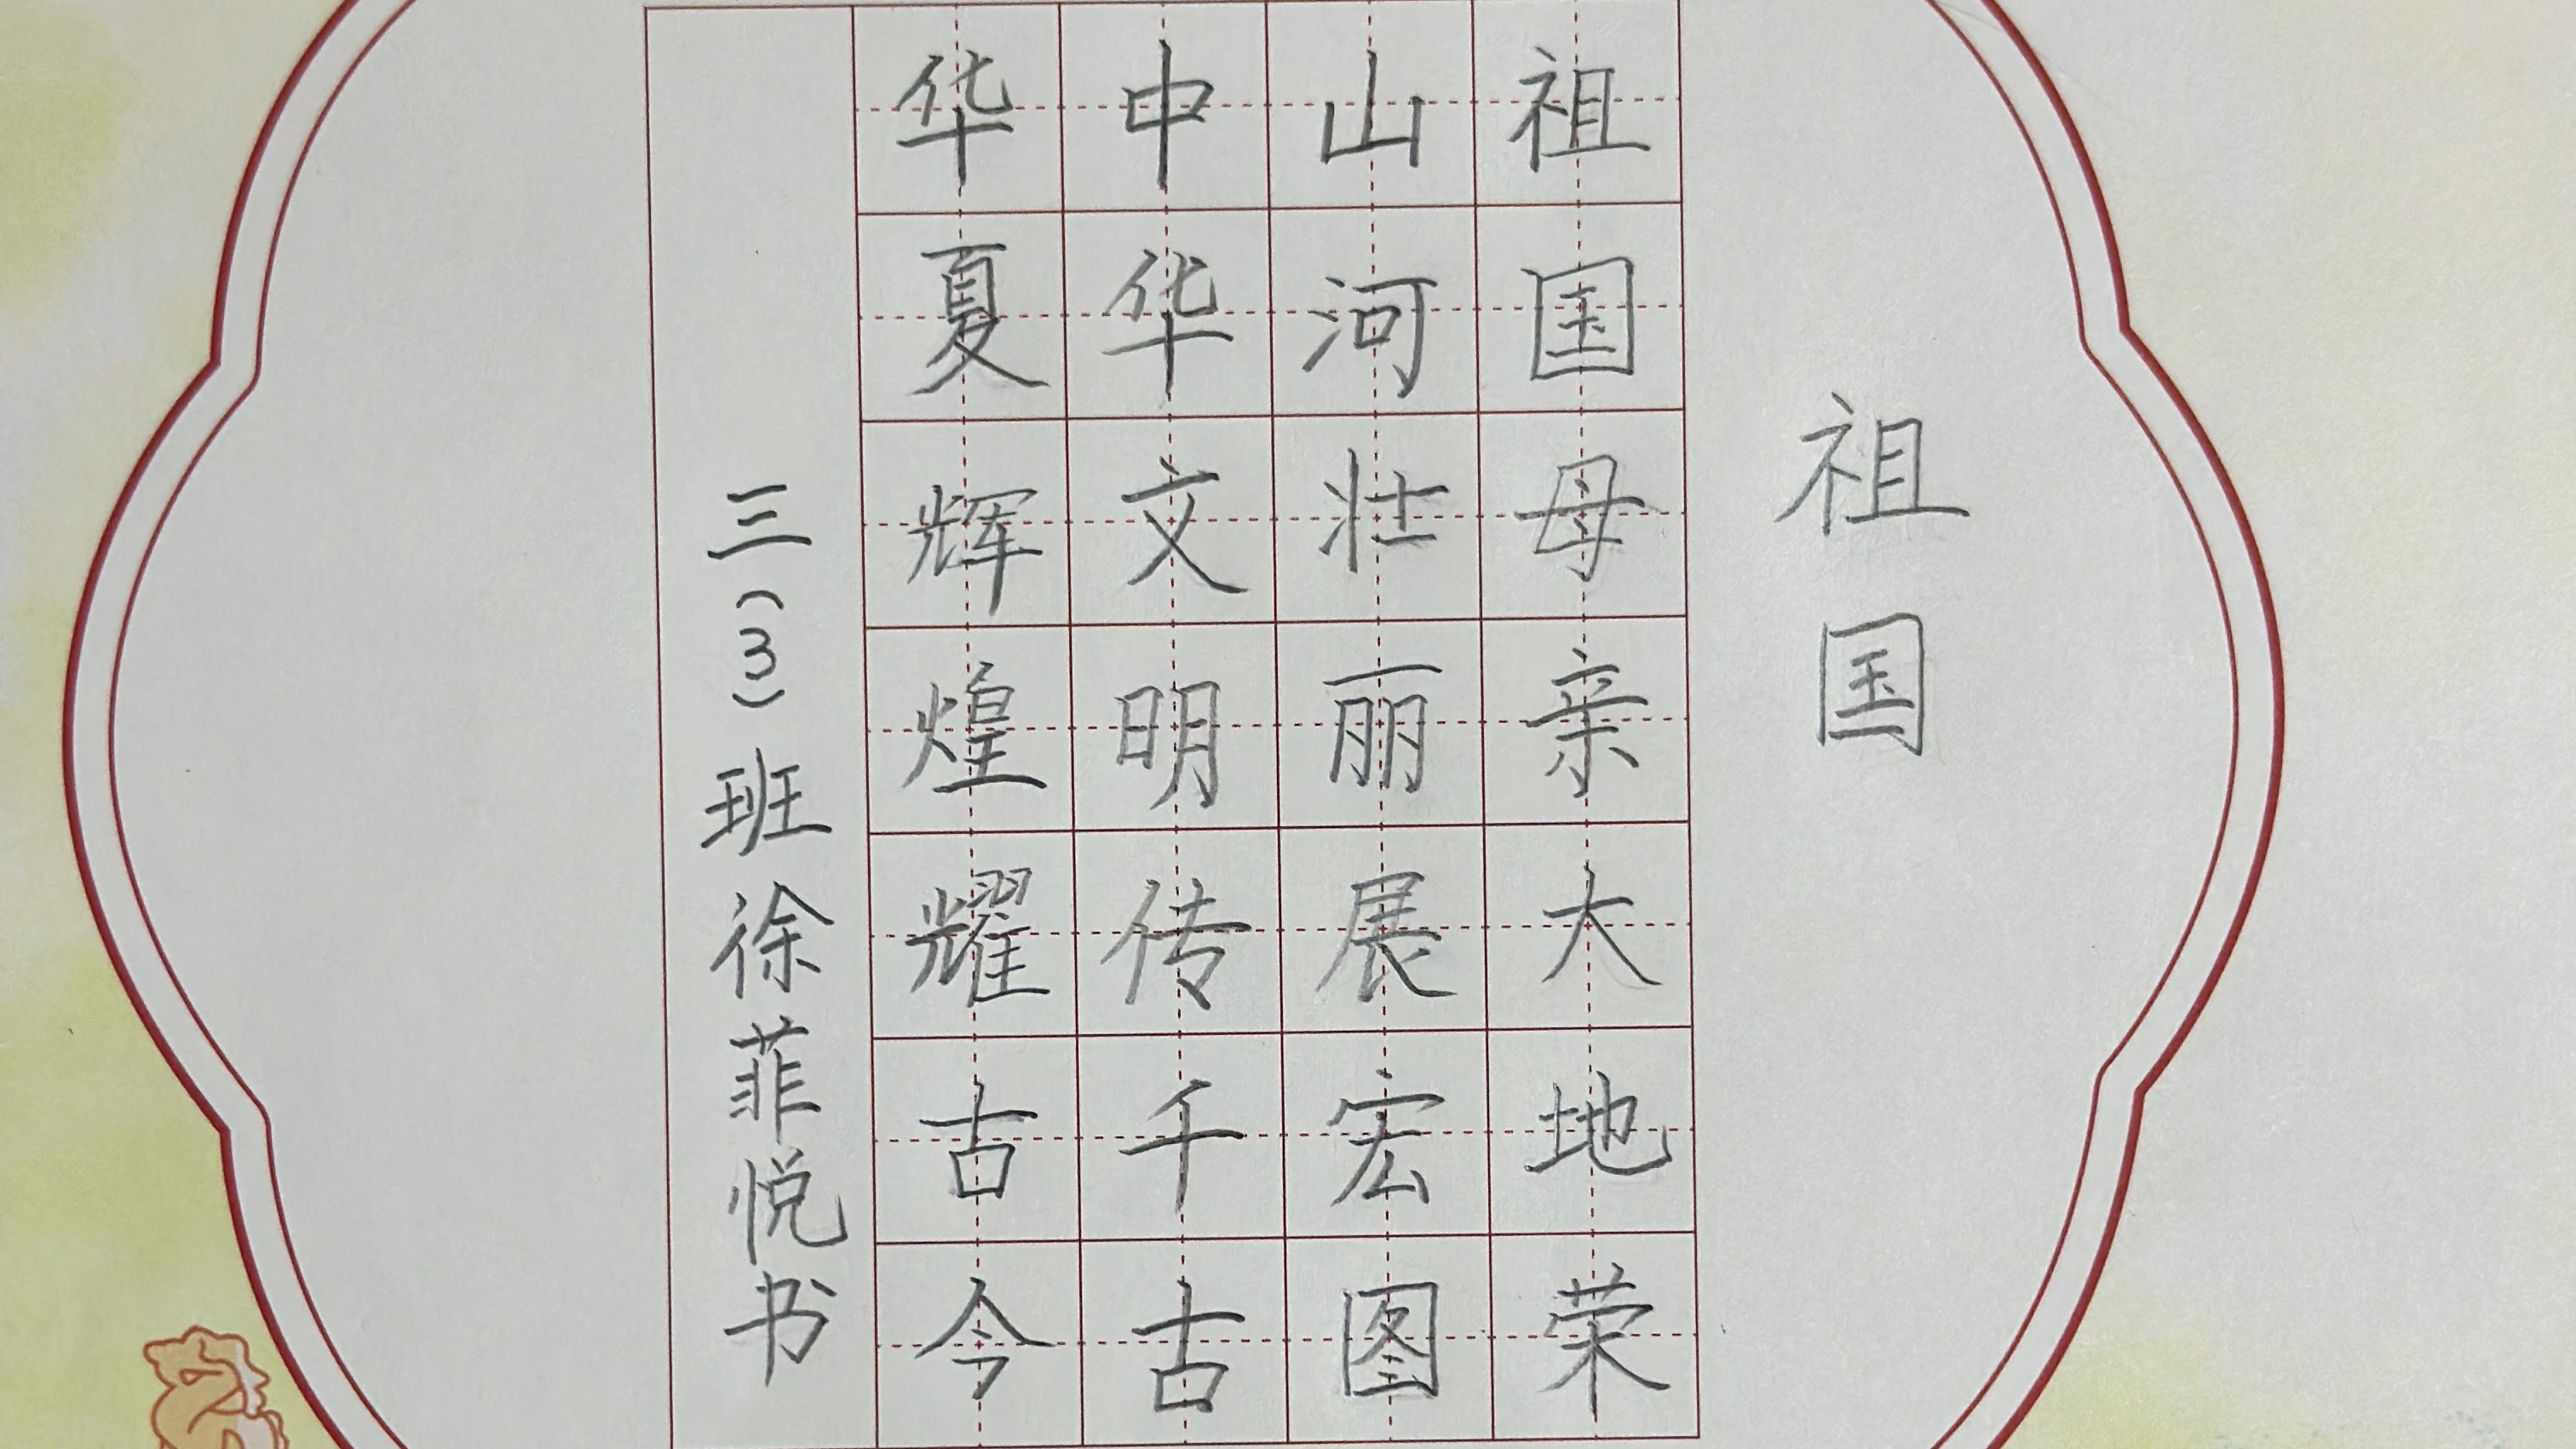 祖国
祖国母亲大地荣
山河壮丽展宏图
中华文明传千古
华夏辉煌耀古今
三(3)班徐菲悦书